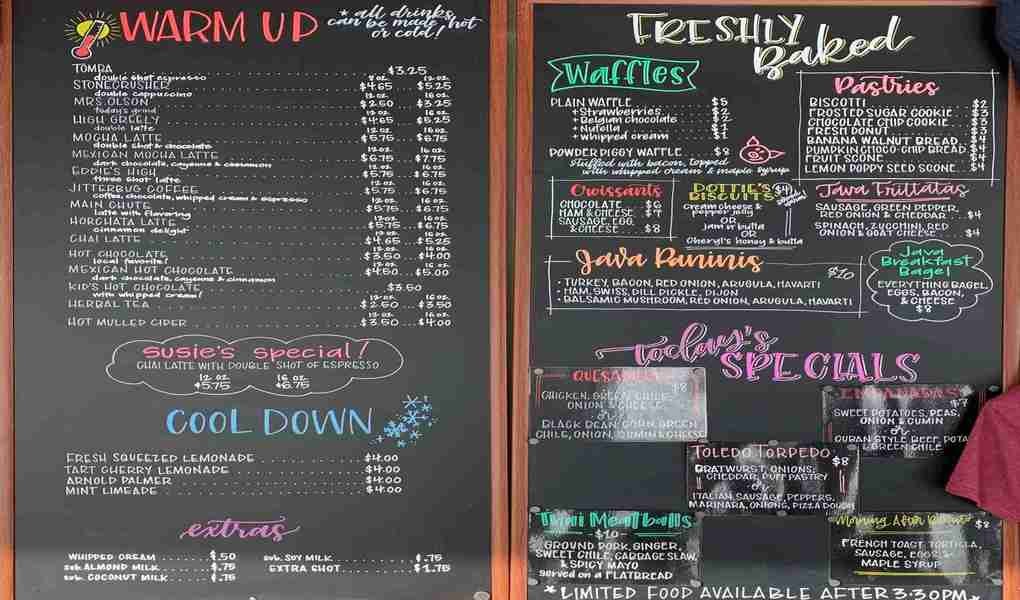 WARM UP
* all drinks
can be made hot
or cold!
TOMBA $3.25
double shot espresso 8 oz. 12 oz.
STONECRUSHER $4.65 $5.25
double cappuccino 12 oz. 16 oz.
MRS. OLSON $2.50 $3.25
today's grind 12 oz. 16 oz.
HIGH GREELY $4.65 $5.25
double latte 12 oz. 16 oz.
MOCHA LATTE $5.75 $6.75
double shot & chocolate 12 oz. 16 oz.
MEXICAN MOCHA LATTE $6.75 $7.75
dark chocolate, cayenne & cinnamon 12 oz. 16 oz.
EDDIE'S HIGH $5.75 $6.75
three shot latte 12 oz. 16 oz.
JITTERBUG COFFEE $5.75 $6.75
coffee, chocolate, whipped cream & espresso 12 oz. 16 oz.
MAIN CHUTE $5.75 $6.75
latte with flavoring 12 oz. 16 oz.
HORCHATA LATTE $5.75 $6.75
cinnamon delight 12 oz. 16 oz.
CHAI LATTE $4.65 $5.25
12 oz. 16 oz.
HOT CHOCOLATE $3.50 $4.00
local favorite! 12 oz. 16 oz.
MEXICAN HOT CHOCOLATE $4.50 $5.00
dark chocolate, cayenne & cinnamon
KID'S HOT CHOCOLATE $3.50
with whipped cream! 12 oz. 16 oz.
HERBAL TEA $2.50 $3.50
12 oz. 16 oz.
HOT MULLED CIDER $3.50 $4.00
susie's special!
CHAI LATTE WITH DOUBLE SHOT OF ESPRESSO
12 oz. 16 oz.
$5.75 $6.75
COOL DOWN
FRESH SQUEEZED LEMONADE $4.00
TART CHERRY LEMONADE $4.00
ARNOLD PALMER $4.00
MINT LIMEADE $4.00
extras
WHIPPED CREAM $.50 sub. SOY MILK $.75
sub. ALMOND MILK $.75 EXTRA SHOT $1.75
sub. COCONUT MILK $.75
FRESHLY
Baked
Waffles
PLAIN WAFFLE $5
+ Strawberries $2
+ Belgian chocolate $2
+ Nutella $1
+ whipped cream $1
POWDER PIGGY WAFFLE $8
stuffed with bacon, topped
with whipped cream & maple syrup
Pastries
BISCOTTI $2
FROSTED SUGAR COOKIE $3
CHOCOLATE CHIP COOKIE $3
FRESH DONUT $3
BANANA WALNUT BREAD $4
PUMPKIN CHOCO-CHIP BREAD $4
FRUIT SCONE $4
LEMON POPPY SEED SCONE $4
Croissants
CHOCOLATE $6
HAM & CHEESE $7
SAUSAGE, EGG,
& CHEESE $8
DOTTIE'S $4
BISCUITS
Cream cheese &
pepper jelly
OR
Jam n' butta
OR
Cheryl's honey & butta
Java Frittatas
SAUSAGE, GREEN PEPPER,
RED ONION & CHEDDAR $4
SPINACH, ZUCCHINI, RED
ONION & GOAT CHEESE $4
Java Paninis
$10
• TURKEY, BACON, RED ONION, ARUGULA, HAVARTI
• HAM, SWISS, DILL PICKLE, DIJON
• BALSAMIC MUSHROOM, RED ONION, ARUGULA, HAVARTI
Java
Breakfast
Bagel
EVERYTHING BAGEL,
EGGS, BACON,
& CHEESE
$8
today's
SPECIALS
QUESADILLA $8
CHICKEN, GREEN CHILE,
ONION & CHEESE
or
BLACK BEAN, CORN, GREEN
CHILE, ONION, CUMIN & CHEESE
EMPANADAS $7
SWEET POTATOES, PEAS,
ONION & CUMIN
or
CUBAN STYLE BEEF, POTA
& GREEN CHILE
TOLEDO TORPEDO $8
BRATWURST, ONIONS,
CHEDDAR, PUFF PASTRY
or
ITALIAN SAUSAGE, PEPPERS,
MARINARA, ONIONS, PIZZA DOUGH
Thai Meatballs
$10
GROUND PORK, GINGER,
SWEET CHILE, CABBAGE SLAW,
& SPICY MAYO
served on a FLATBREAD
Morning After Burrito $8
FRENCH TOAST TORTILLA,
SAUSAGE, EGGS &
MAPLE SYRUP
* LIMITED FOOD AVAILABLE AFTER 3:30PM *